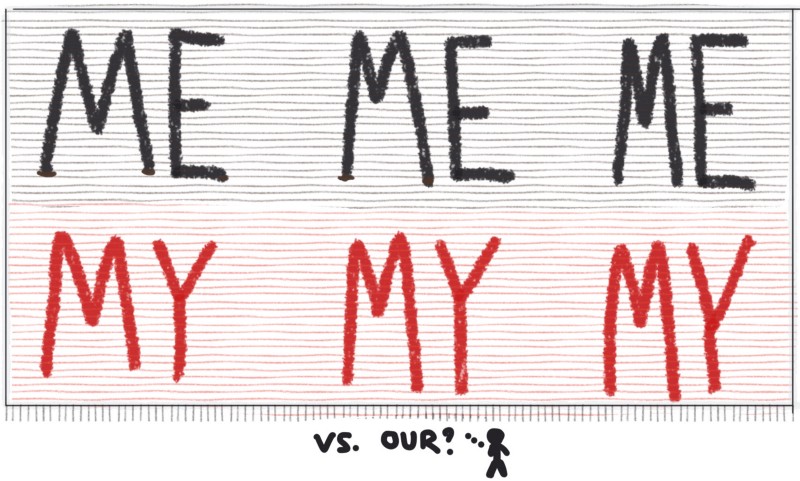 ME ME ME
MY MY MY
VS. OUR?